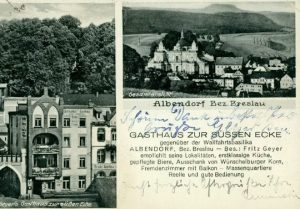 Gesamtansicht
Albendorf Bez. Breslau
GASTHAUS ZUR SÜSSEN ECKE
gegenüber der Wallfahrtsbasilika
ALBENDORF, Bez. Breslau — Bes.: Fritz Geyer
empfiehlt seine Lokalitäten, erstklassige Küche,
gepflegte Biere, Ausschank von Wünschelburger Korn,
Fremdenzimmer mit Balkon — Massenquartiere
Reelle und gute Bedienung
Geyers Gasthaus zur süßen Ecke